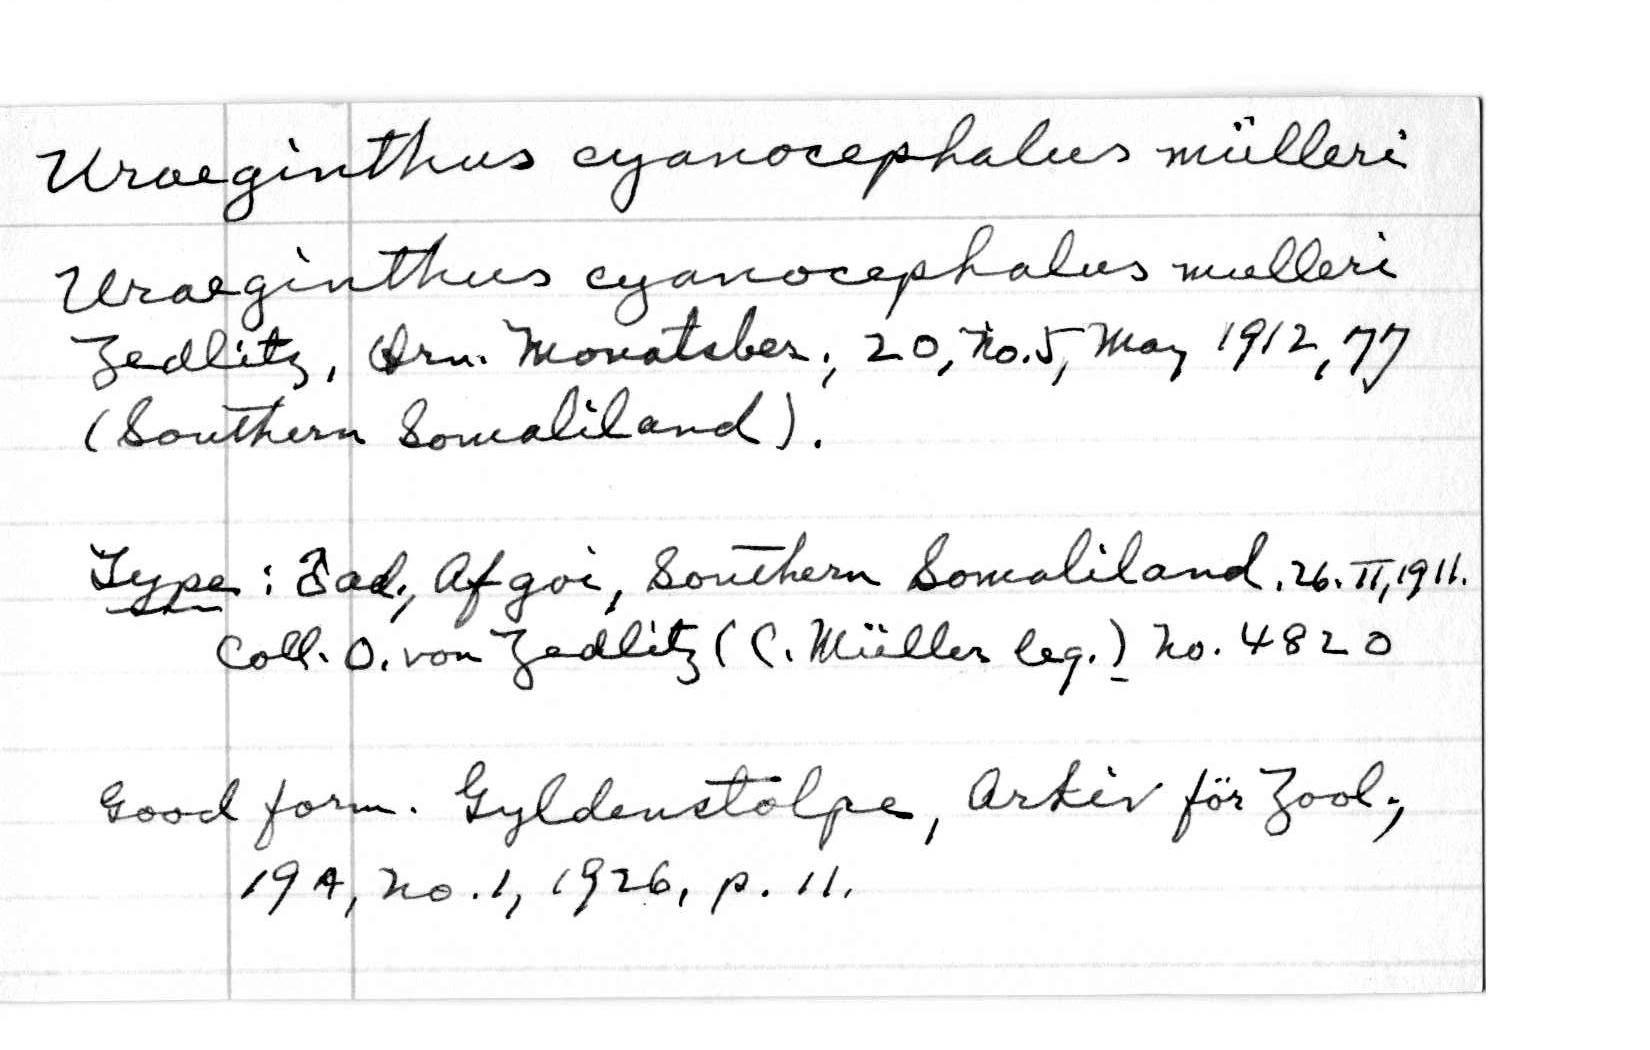 Uraeginthus cyanocephalus mülleri
Uraeginthus cyanocephalus muelleri
Zedlitz, Orn. Monatsber., 20, No. 5, May 1912, 77
(Southern Somaliland).
Type: ♂ ad., Afgoi, Southern Somaliland. 26. II, 1911.
Coll. O. von Zedlitz (C. Müller leg.) No. 4820
Good form. Gyldenstolpe, Arkiv för Zool.,
19A, No. 1, 1926, p. 11.